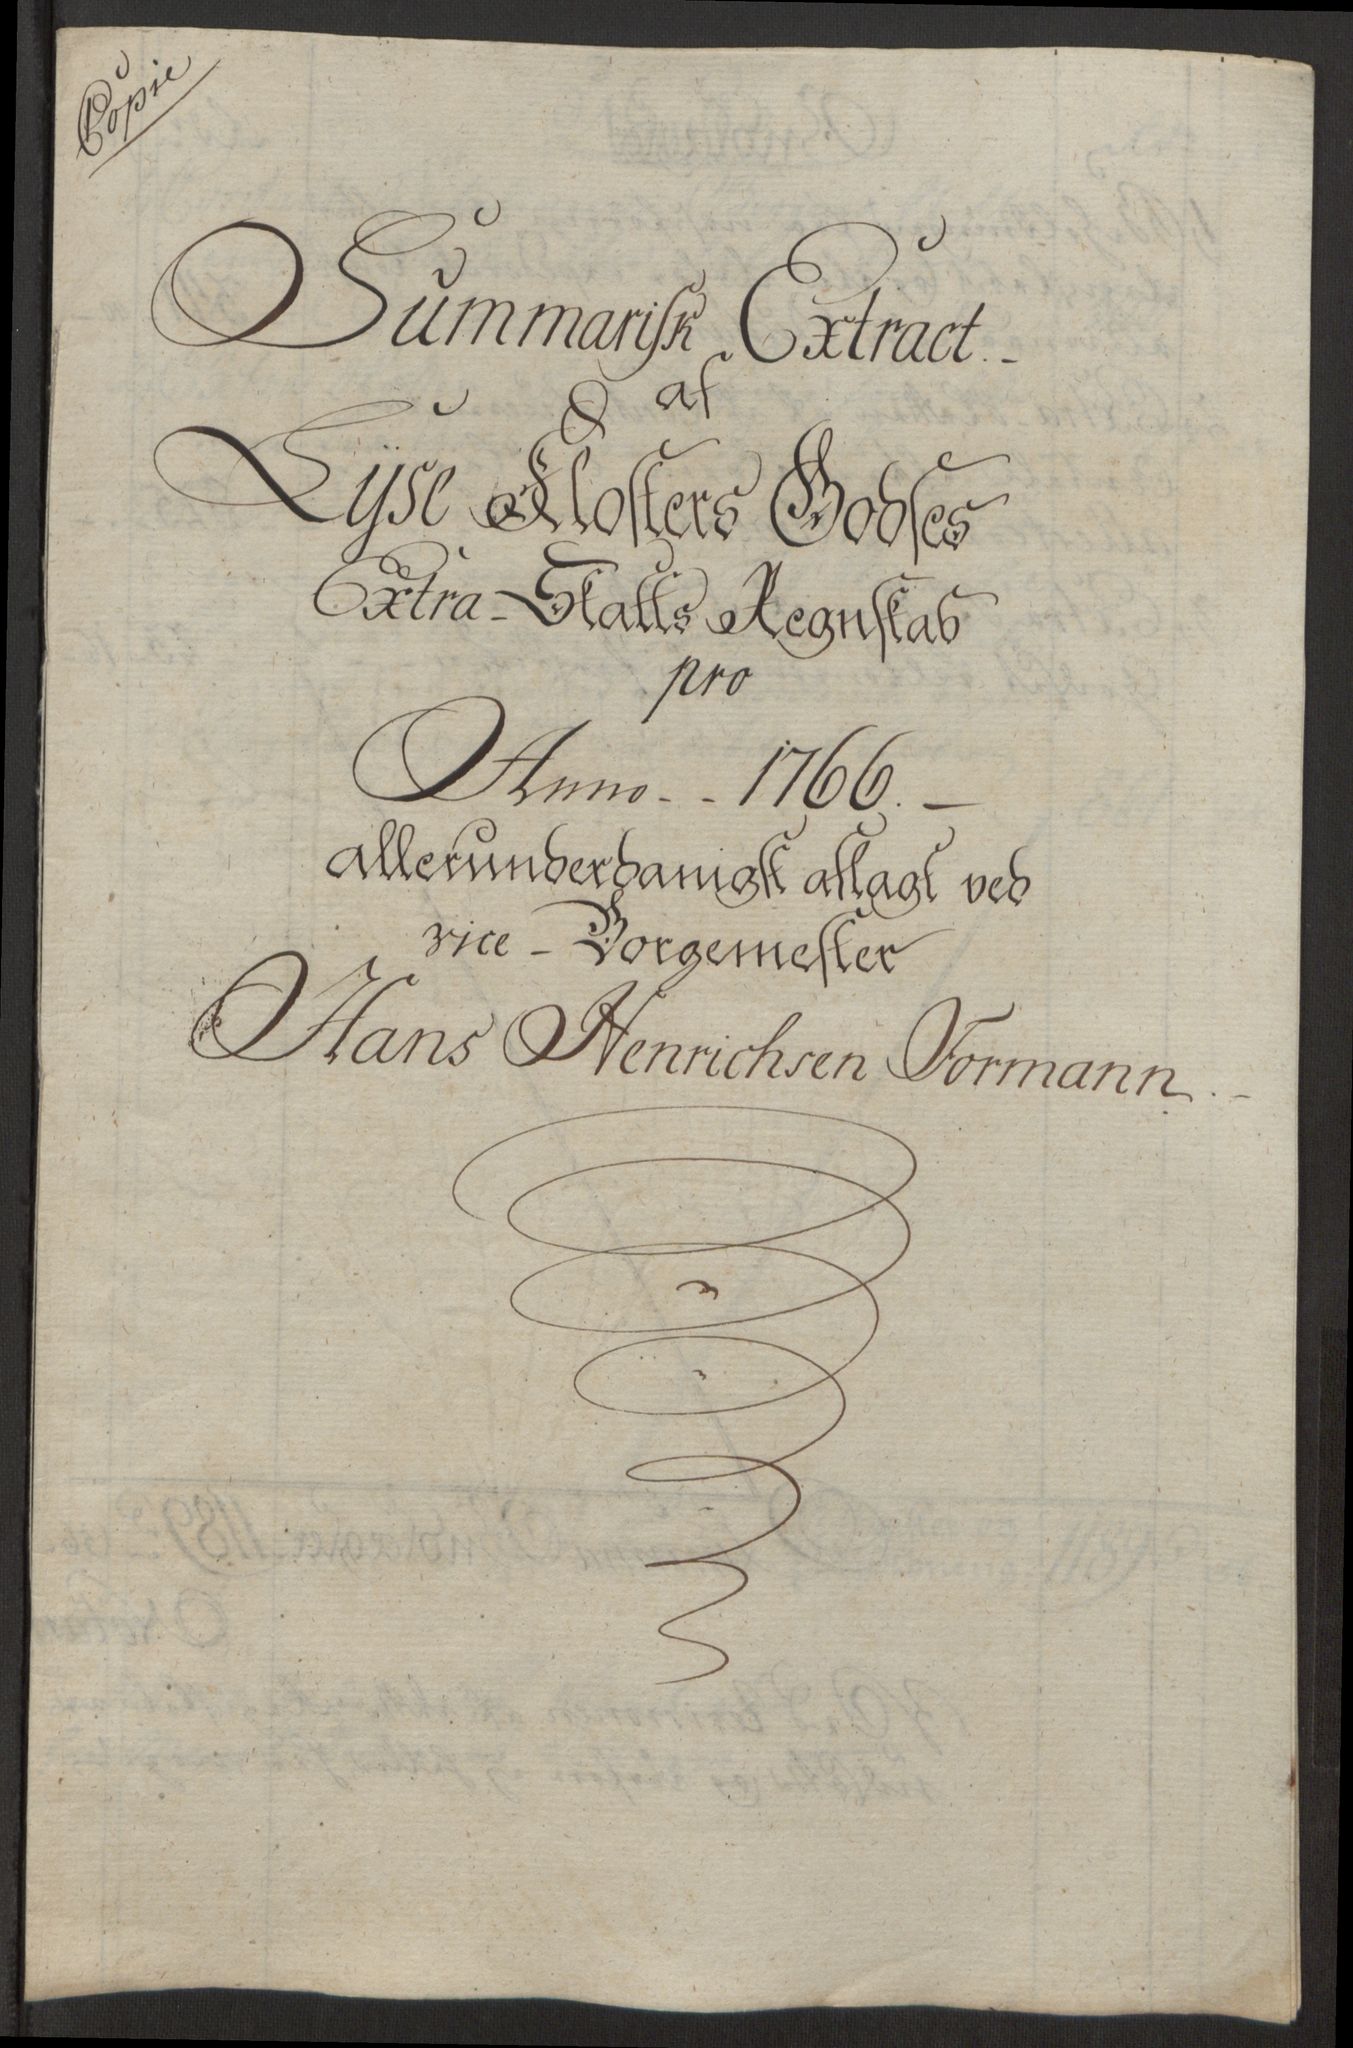 Copie
Summarisk Extract.
af
Lyse Klosters Godses
Extra-Skatts Regnskab
pro
Anno - - 1766. -
allerunderdanigst aflagt ved
vice - Borgemester
Hans Henrichsen Formann